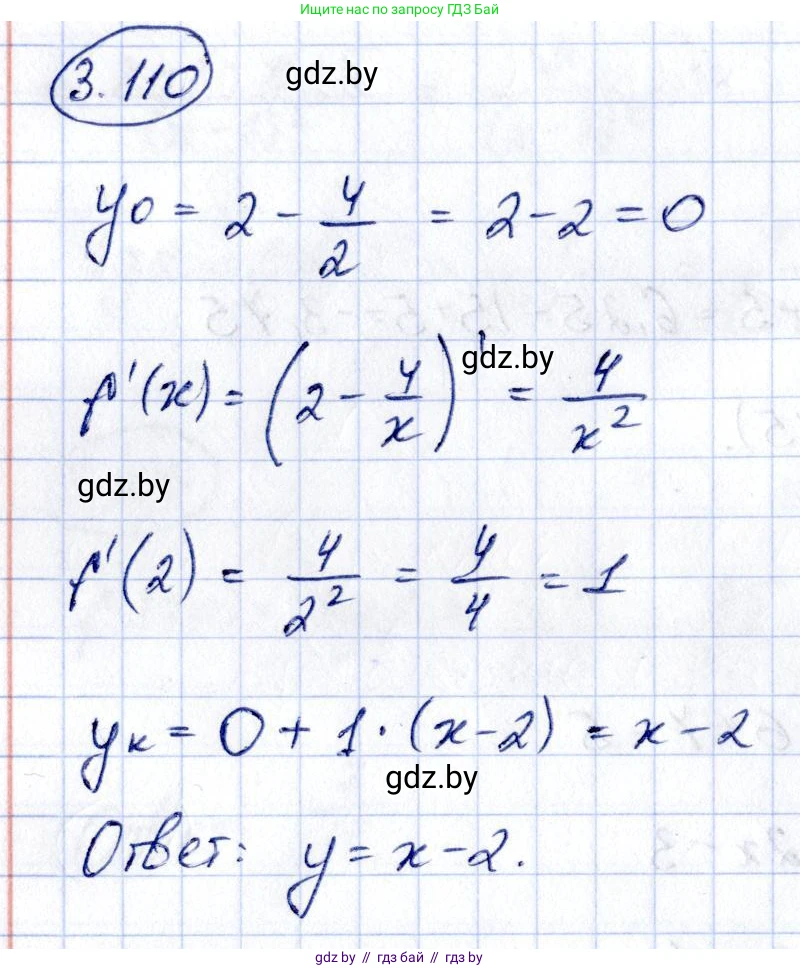 Ищите нас по запросу ГДЗ Бай
3.110 gdz.by
y0 = 2 - 4/2 = 2 - 2 = 0
f'(x) = (2 - 4/x)' = 4/x²
gdz.by
gdz.by
f'(2) = 4/2² = 4/4 = 1
yк = 0 + 1 · (x - 2) = x - 2
gdz.by
Ответ: y = x - 2.
gdz.by // гдз бай // gdz by